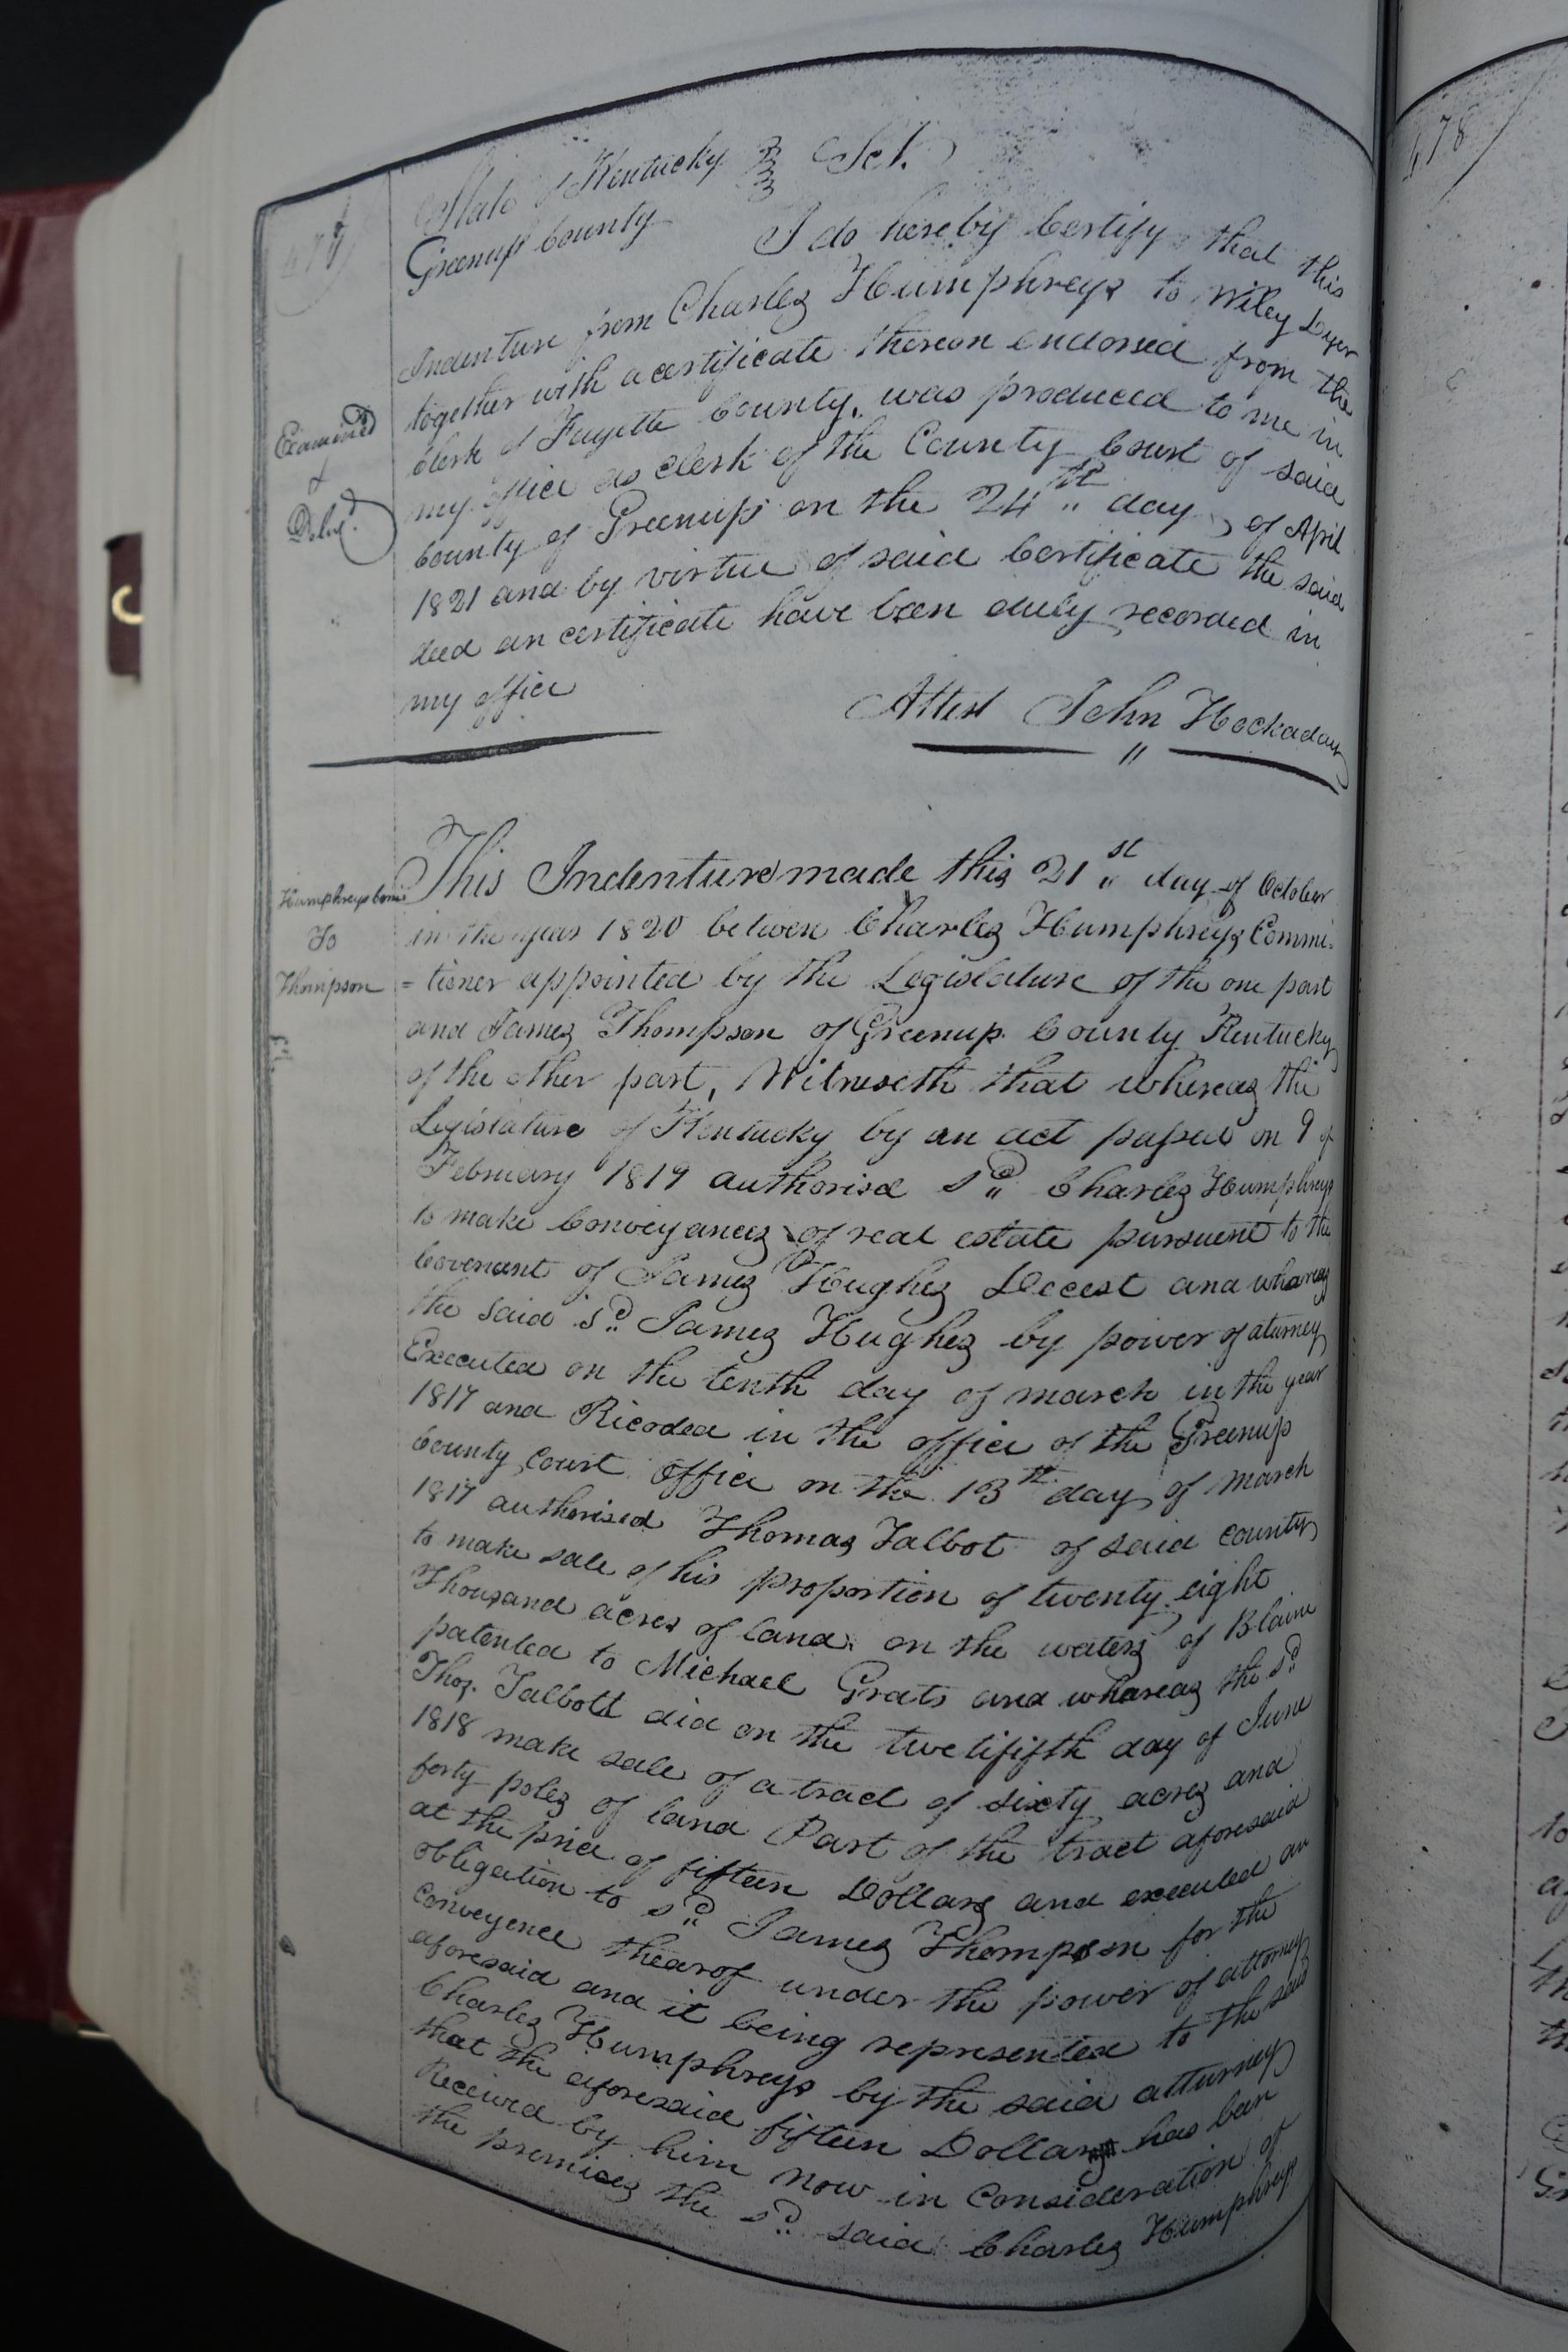 State of Kentucky Sct.
Greenup County
I do hereby Certify that this
Indenture from Charles Humphreys to Wiley Dyer
together with a certificate thereon endorsed from the
Clerk of Fayette County, was produced to me in
my office as Clerk of the County Court of said
County of Greenup on the 24th day of April
1821 and by virtue of said Certificate the said
deed an certificate have been duly recorded in
my office
Attest John Hockaday
Examined
&
Delvd.
Humphreys Comr
To
Thompson
This Indenture made this 21st day of October
in the year 1820 between Charles Humphreys Commi-
=tioner appointed by the Legislature of the one part
and James Thompson of Greenup County Kentucky
of the other part, Witneseth that whereas the
Legislature of Kentucky by an act passed on 9 of
February 1819 authorised sd Charles Humphreys
to make Conveyances of real estate pursuent to the
Covenant of James Hughes Decest and whareas
the said sd James Hughes by power of aturney
Executed on the tenth day of march in the year
1817 and Ricoded in the office of the Greenup
County Court Office on the 13th day of March
1817 authorised Thomas Talbot of said county
to make sale of his proportion of twenty eight
Thousand acres of land on the waters of Blaine
patented to Michael Grats and whareas the sd
Thos. Talbott did on the twetififth day of June
1818 make sale of a tract of sixty acres and
forty poles of land Part of the tract aforesaid
at the price of fifteen Dollars and executed an
obligation to sd James Thompson for the
conveyence thearof under the power of attorney
aforesaid and it being represented to the said
Charles Humphreys by the said atturney
that the aforesaid fifteen Dollars has ben
Received by him now in Consideration of
the premises the sd said Charles Humphreys
478